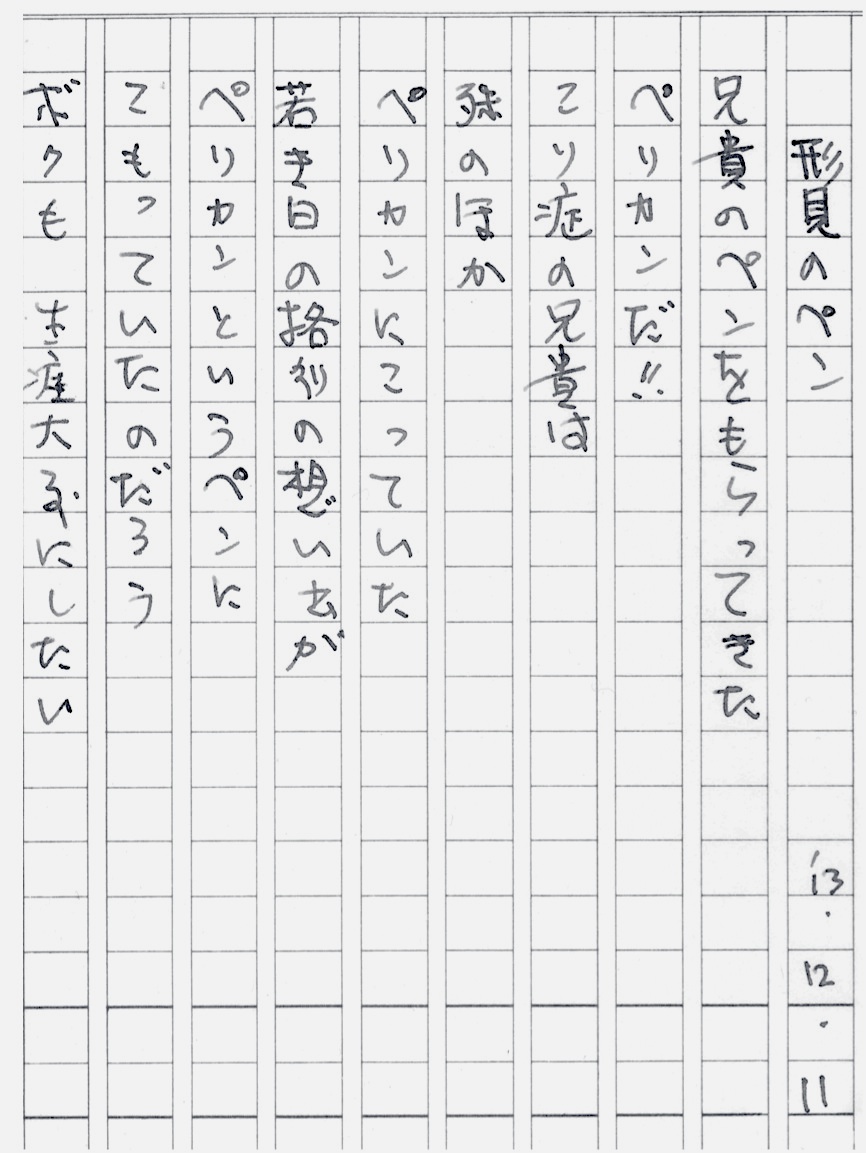 形見のペン '13.12.11
兄貴のペンをもらってきた
ペリカンだ!!
こり症の兄貴は
殊のほか
ペリカンにこっていた
若き日の格別の想い出が
ペリカンというペンに
こもっていたのだろう
ボクも 生涯大事にしたい